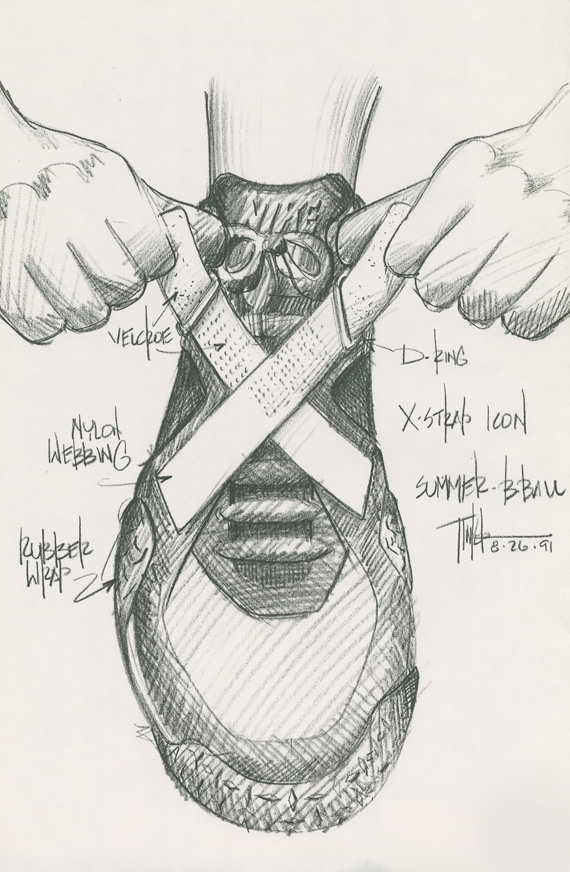 NIKE
VELCROE
D-RING
X-STRAP ICON
NYLON
WEBBING
SUMMER-B-BALL
RUBBER
WRAP
8.26.91